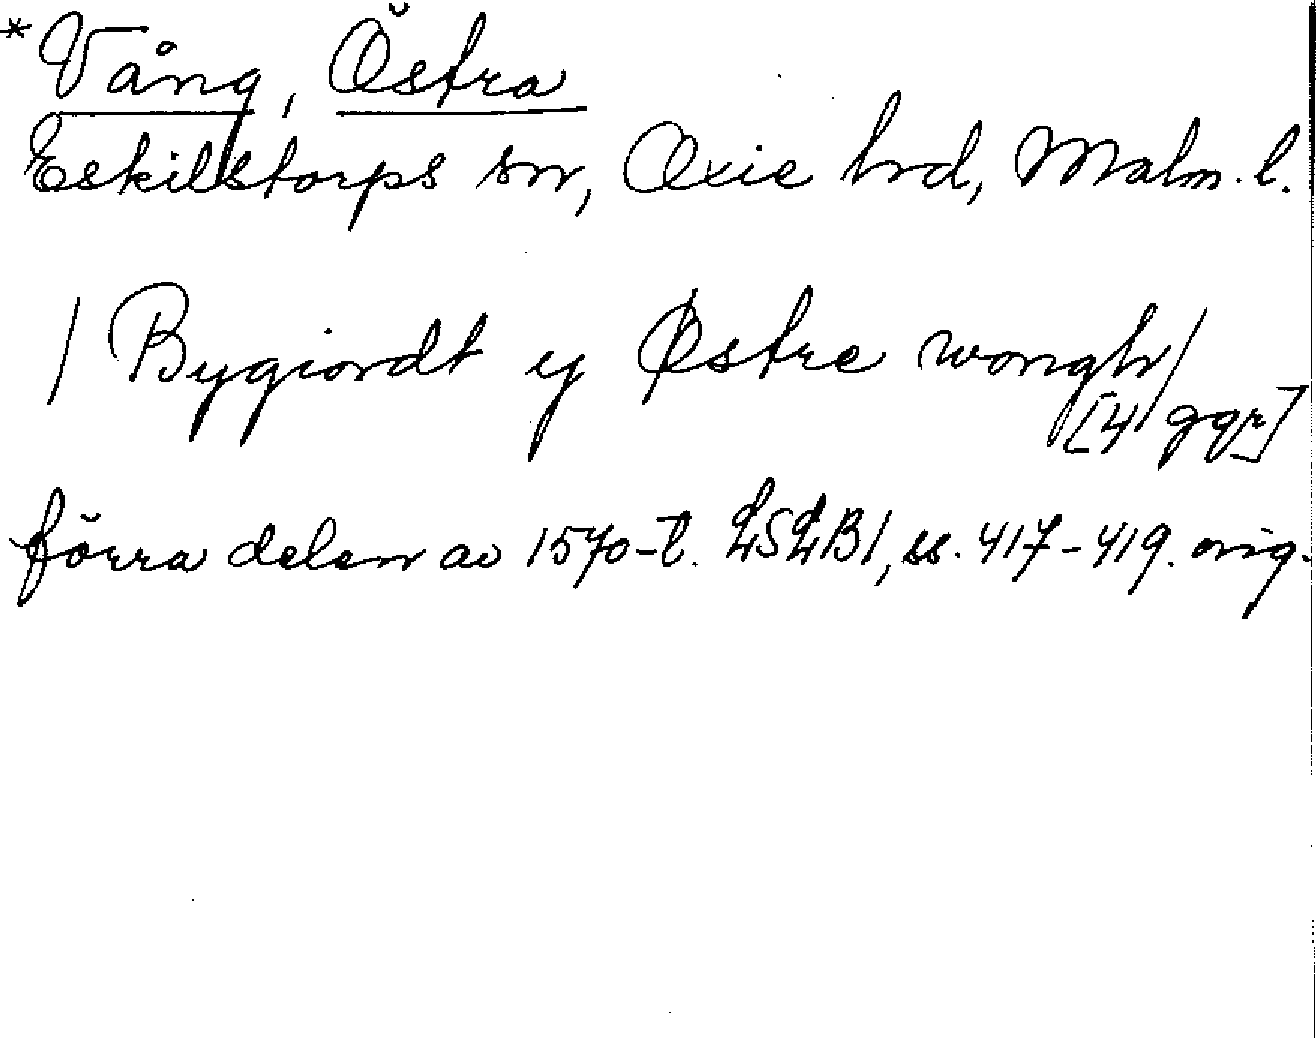 *Vång, Östra
Eskilstorps sn, Oxie hrd, Malm. l.
/ Bygiordt y Østre wongh/
[4 ggr]
förra delen av 1570-t. LSLB1, ss. 417-419. orig.